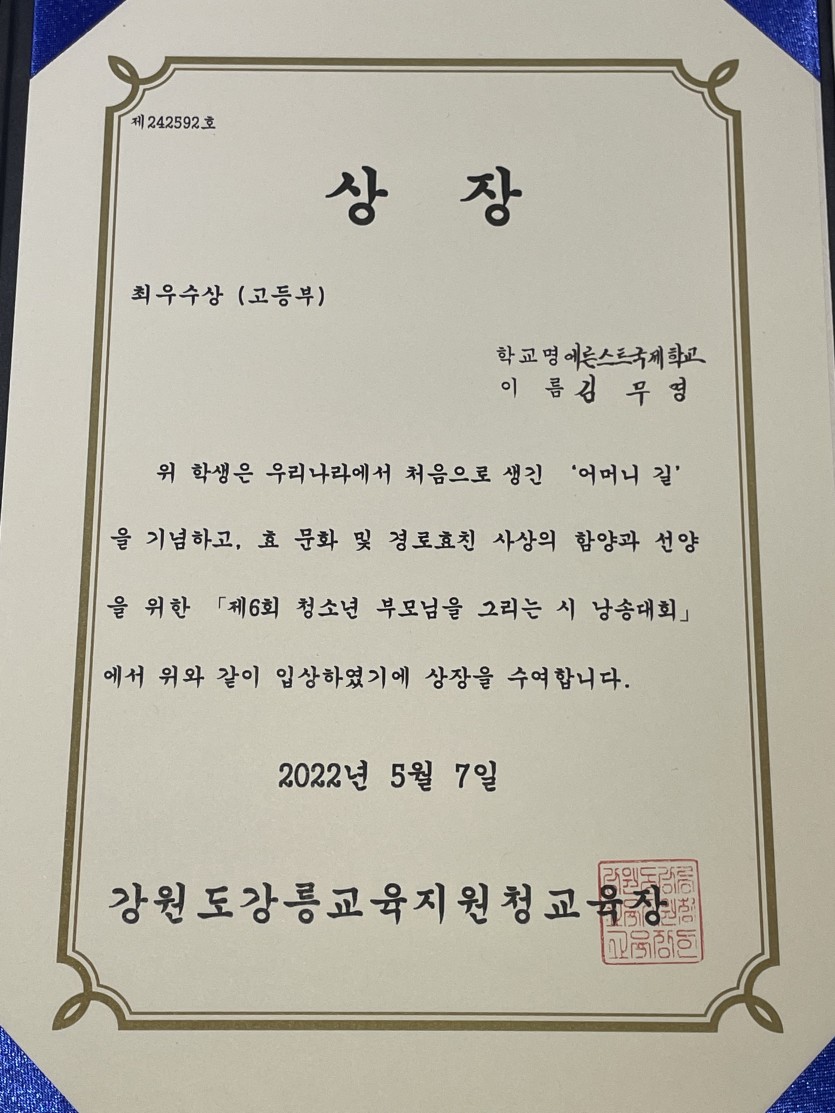 제242592호
상 장
최우수상 (고등부)
학교명 에른스트국제학교
이 름 김 무 영
위 학생은 우리나라에서 처음으로 생긴 '어머니 길'
을 기념하고, 효 문화 및 경로효친 사상의 함양과 선양
을 위한 「제6회 청소년 부모님을 그리는 시 낭송대회」
에서 위와 같이 입상하였기에 상장을 수여합니다.
2022년 5월 7일
강원도강릉교육지원청교육장